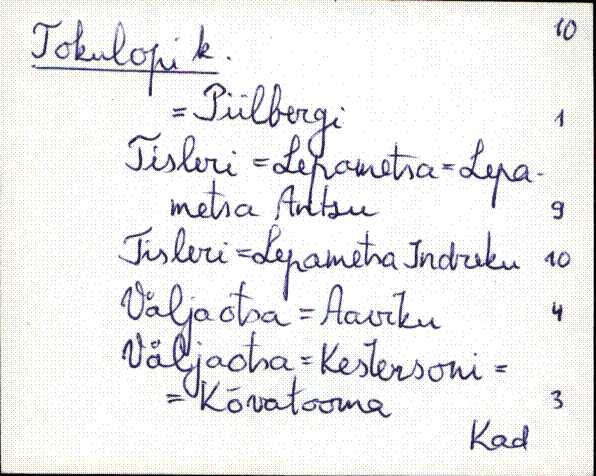 10
Tokulopi k.
= Piilbergi 1
Tisleri = Lepametsa = Lepa-
metsa Antsu 9
Tisleri = Lepametsa Indreku 10
Väljaotsa = Aaviku 4
Väljaotsa = Kestersoni =
= Kõvatooma 3
Kad